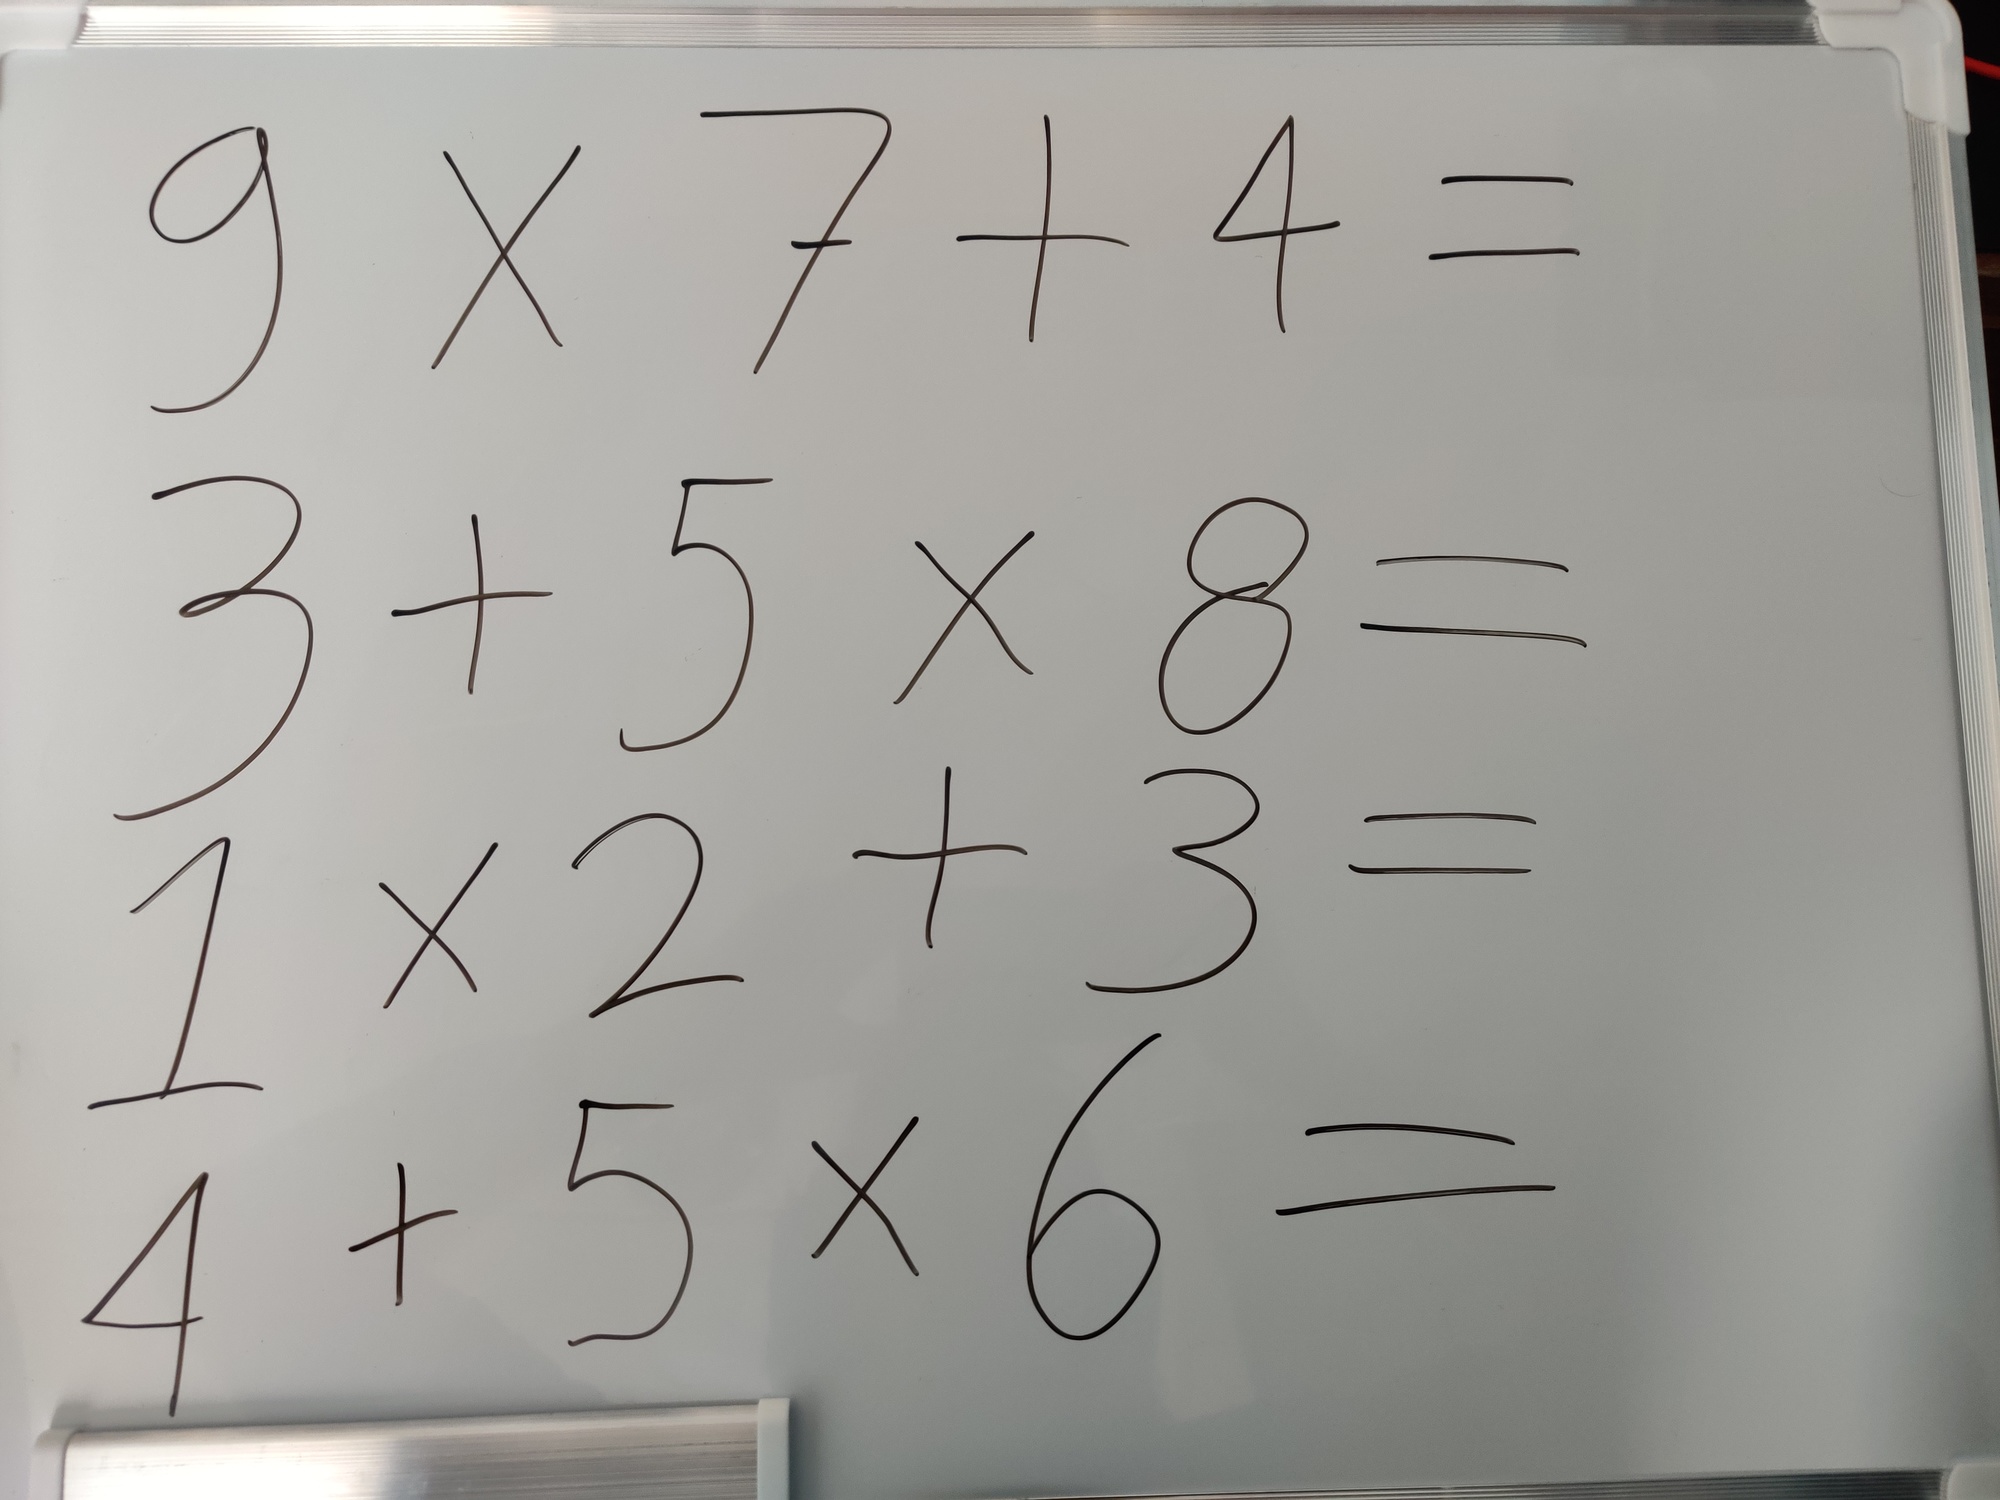 9 × 7 + 4 =
3 + 5 × 8 =
1 × 2 + 3 =
4 + 5 × 6 =